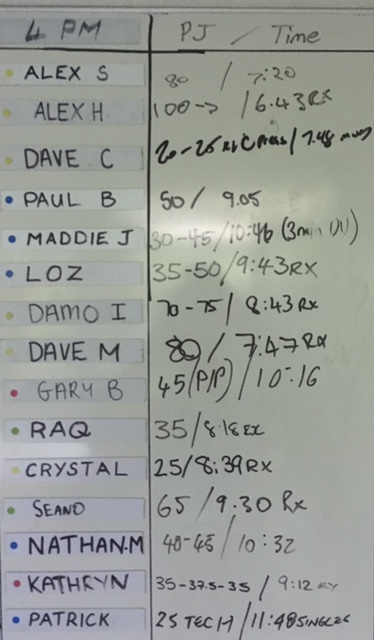 4 PM PJ / Time
ALEX S 80 / 7:20
ALEX H 100-> / 6.43 RX
DAVE C 20-25 / 7.48
PAUL B 50 / 9.05
MADDIE J 30-45/10:46 (3min
LOZ 35-50/9:43 RX
DAMO I 70-75 / 8:43 Rx
DAVE M 80 / 7:47 Rx
GARY B 45 (P/P) / 10:16
RAQ 35/8:18
CRYSTAL 25/8:39 RX
SEANO 65 / 9.30 Rx
NATHAN.M 40-45 / 10:32
KATHRYN 35-37.5-35 / 9:12
PATRICK 25 TECH / 11:48 SINGLES